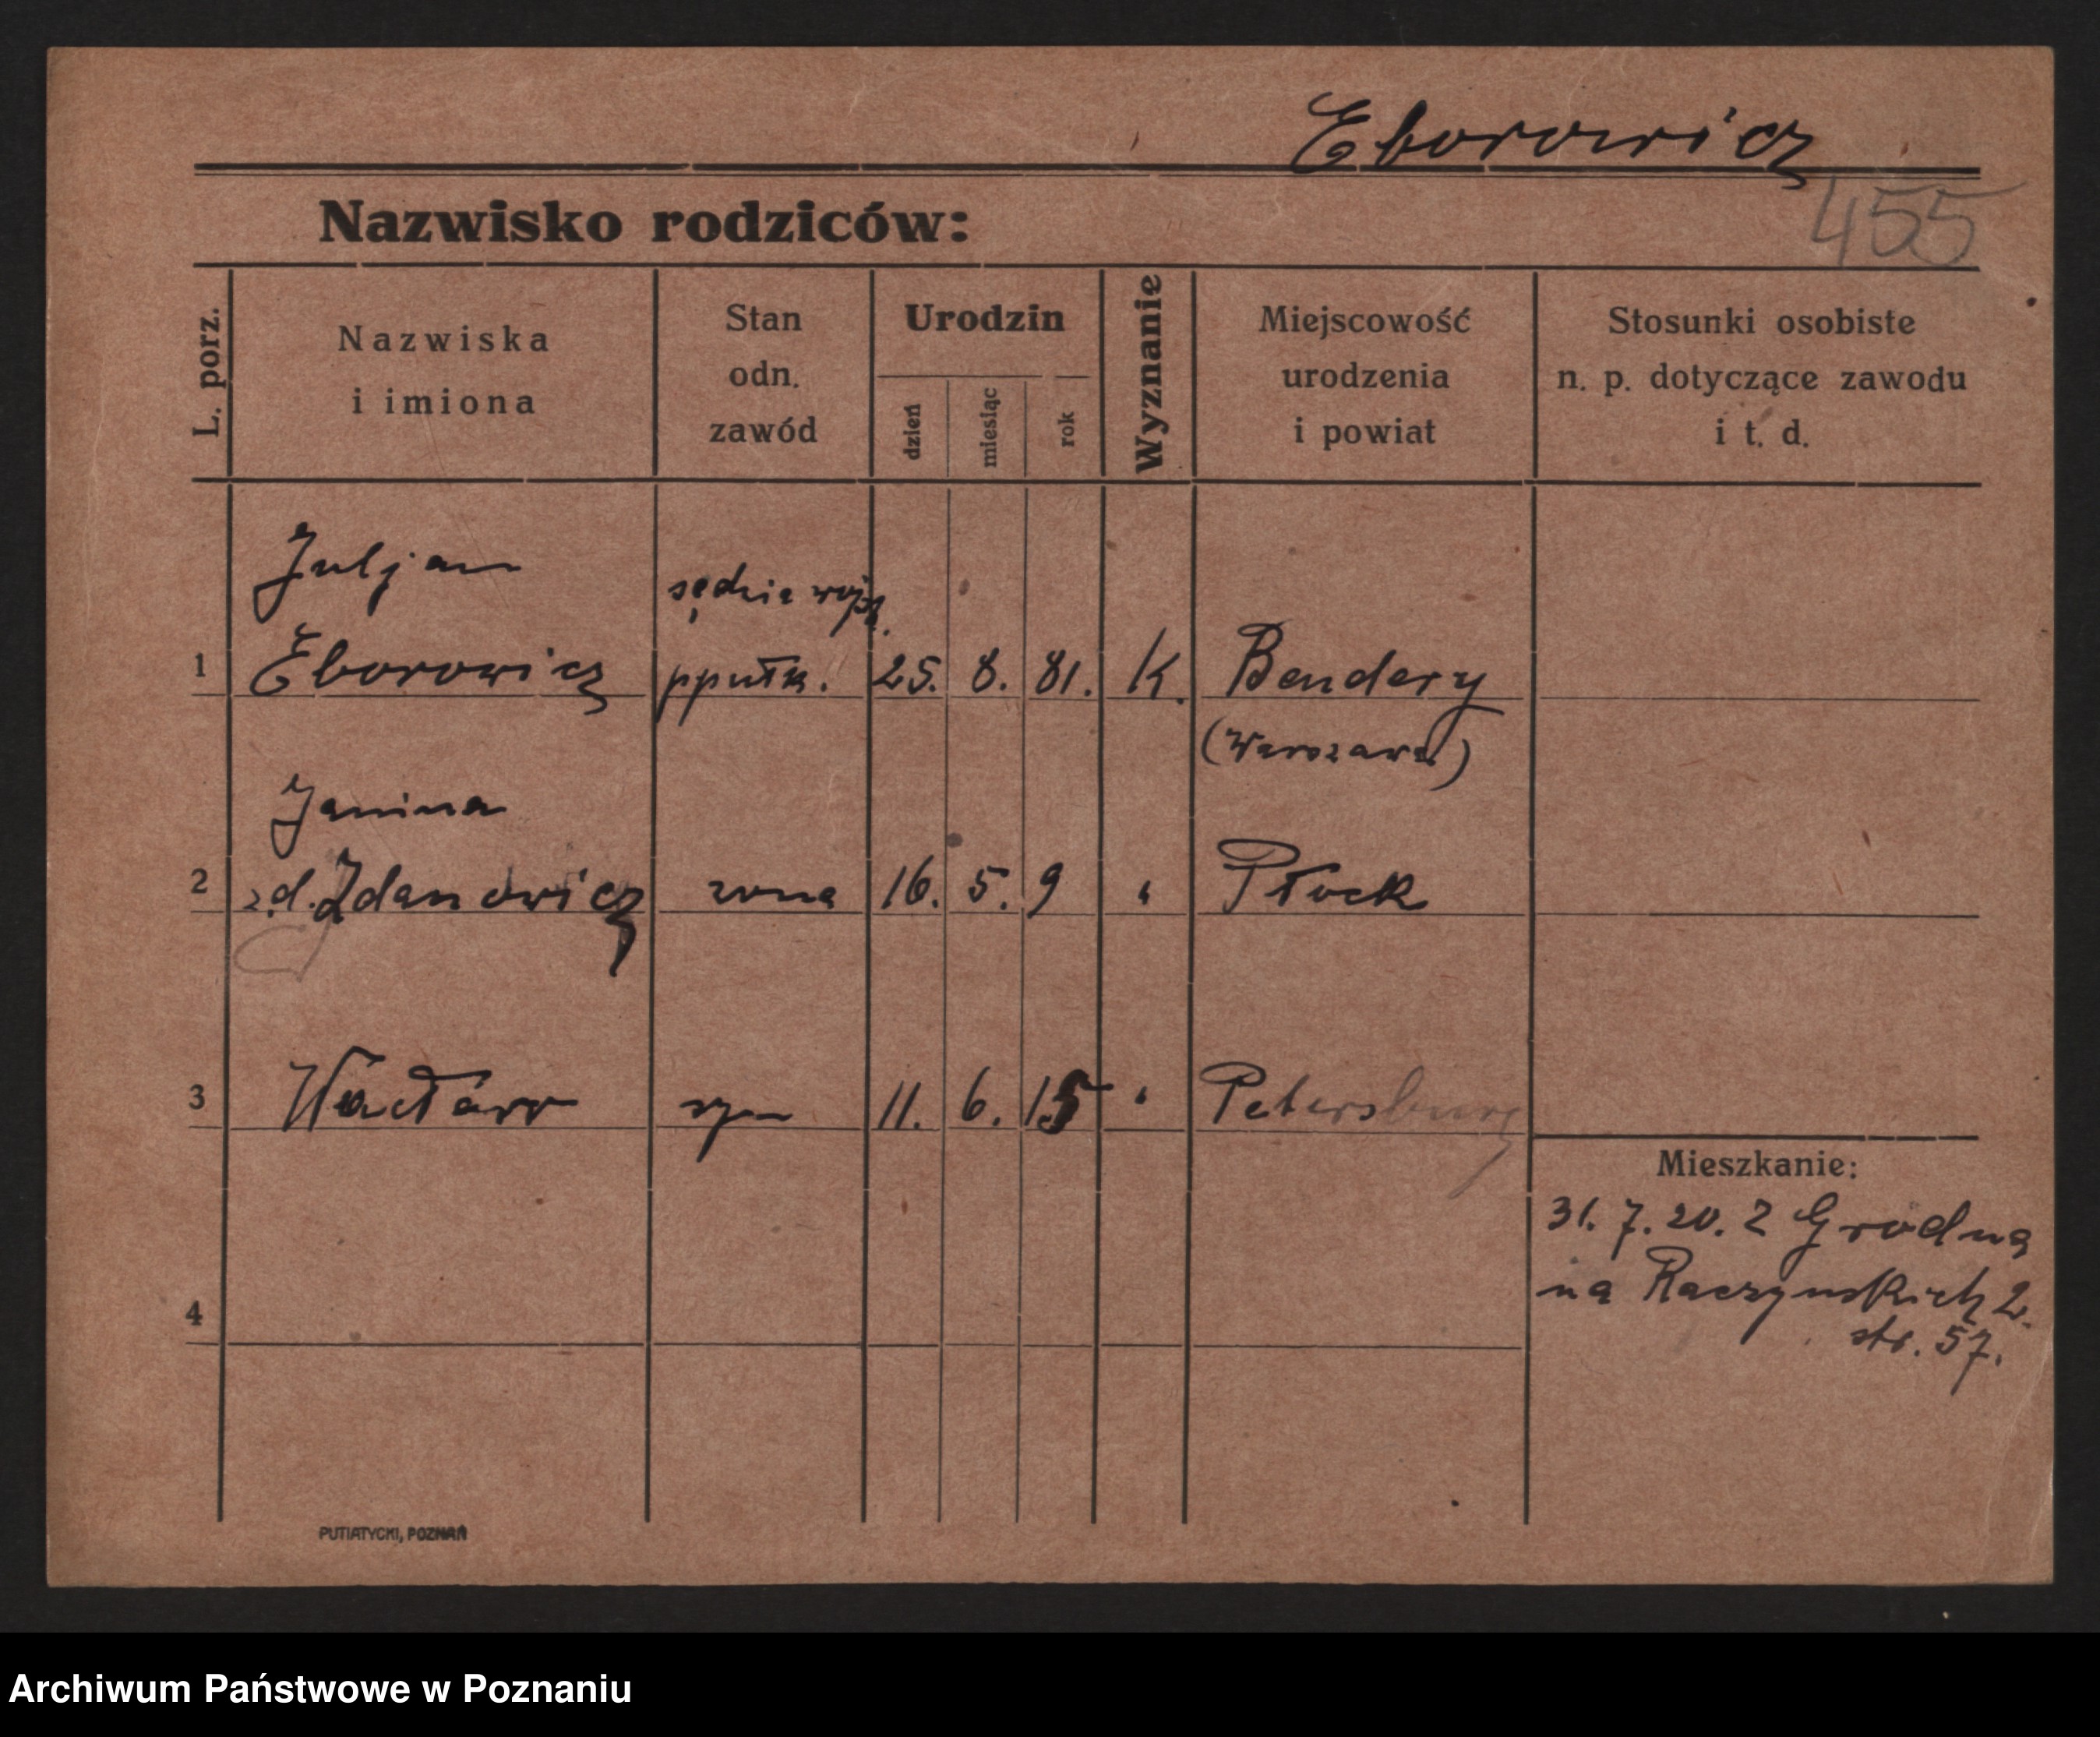 Eborowicz
455
Nazwisko rodziców:
L. porz.
Nazwiska i imiona
Stan odn. zawód
Urodzin
dzień
miesiąc
rok
Wyznanie
Miejscowość urodzenia i powiat
Stosunki osobiste n. p. dotyczące zawodu i t. d.
Juljan
sędzia wojsk.
1 Eborowicz ppułk. 25. 8. 81. K. Bendery
(Warszawa)
Janina
2 z d. Zdanowicz zona 16. 5. 9 " Płock
3 Wacław syn 11. 6. 15 " Petersburg
Mieszkanie:
31. 7. 20. Z Grodna
na Raczynskich 2.
str. 57.
4
PUTIATYCKI, POZNAŃ
Archiwum Państwowe w Poznaniu